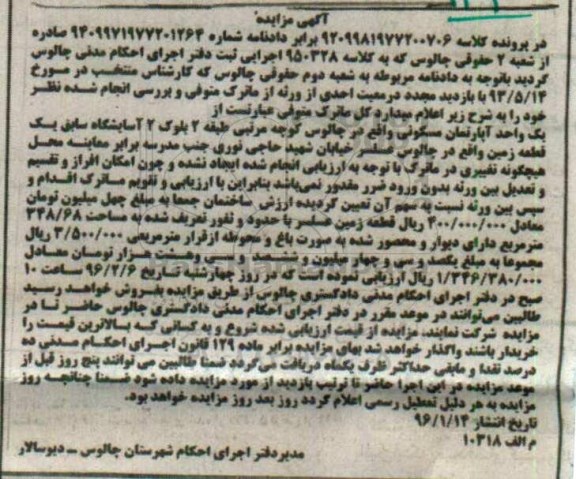 آگهی مزایده
در پرونده کلاسه ۹۲۰۹۹۸۱۹۷۷۲۰۰۷۰۶ برابر دادنامه شماره ۹۴۰۹۹۷۱۹۷۷۲۰۱۲۶۴ صادره
از شعبه ۲ حقوقی چالوس که به کلاسه ۹۵۰۳۲۸ اجرایی ثبت دفتر اجرای احکام مدنی چالوس
گردید باتوجه به دادنامه مربوطه به شعبه دوم حقوقی چالوس که کارشناس منتخب در مورخ
۹۳/۵/۱۴ با بازدید مجدد درمعیت احدی از ورثه از ماترک متوفی و بررسی انجام شده نظر
خود را به شرح زیر اعلام میدارد کل ماترک متوفی عبارتست از
یک واحد آپارتمان مسکونی واقع در چالوس کوچه مرتبی طبقه ۲ بلوک ۲ آسایشگاه سابق یک
قطعه زمین واقع در چالوس خیابان شهید حاجی نوری جنب مدرسه برابر معاینه محل
هیچگونه تغییری در ماترک با توجه به ارزیابی انجام شده ایجاد نشده و چون امکان افراز و تقسیم
و تعدیل بین ورثه بدون ورود ضرر مقدور نمی‌باشد بنابراین با ارزیابی و تقویم ماترک اقدام و
سپس بین ورثه نسبت به سهم آن تعیین گردیده ارزش ساختمان جمعا به مبلغ چهل میلیون تومان
معادل ۴۰۰/۰۰۰/۰۰۰ ریال قطعه زمین با حدود و ثغور تعریف شده به مساحت ۳۴۸/۶۸
مترمربع دارای دیوار و محصور شده به صورت باغ و محوطه ازقرار مترمربعی ۳/۵۰۰/۰۰۰ ریال
مجموعا به مبلغ یکصد و سی و چهار میلیون و ششصد و سی وهشت هزار تومان معادل
۱/۳۴۶/۳۸۰/۰۰۰ ریال ارزیابی نموده است که در روز چهارشنبه تاریخ ۹۶/۲/۶ ساعت ۱۰
صبح در دفتر اجرای احکام مدنی دادگستری چالوس از طریق مزایده بفروش خواهد رسید
طالبین می‌توانند در موعد مقرر در دفتر اجرای احکام مدنی دادگستری چالوس حاضر تا در
مزایده شرکت نمایند. مزایده از قیمت ارزیابی شده شروع و به کسانی که بالاترین قیمت را
خریدار باشند واگذار خواهد شد بهای مزایده برابر ماده ۱۲۹ قانون اجرای احکام مدنی ده
درصد نقدا و مابقی حداکثر ظرف یکماه دریافت می‌گردد ضمنا طالبین می توانند پنج روز قبل از
موعد مزایده در این اجرا حاضر تا ترتیب بازدید از مورد مزایده داده شود ضمنا چنانچه روز
مزایده به هر دلیل تعطیل رسمی اعلام گردد روز بعد روز مزایده خواهد بود.
تاریخ انتشار ۹۶/۱/۱۴
م الف ۱۰۳۱۸
مدیردفتر اجرای احکام شهرستان چالوس ــ دیوسالار